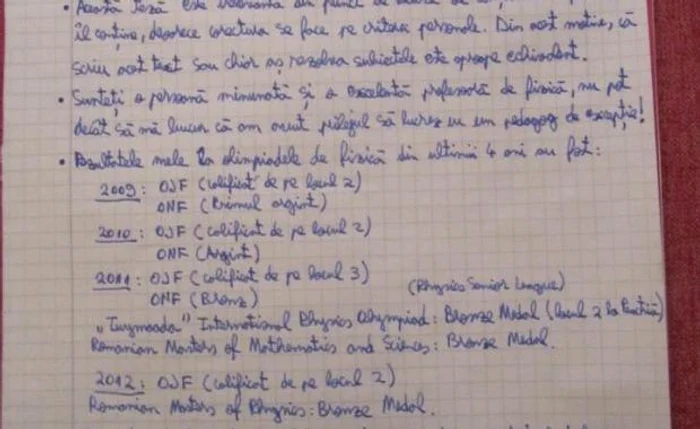 • Această teză este relevantă din punct de vedere al
îl conține, deoarece corectura se face pe criterii personale. Din acest motiv, că
scriu acest text sau chiar aș rezolva subiectele este aproape echivalent.
• Sunteți o persoană minunată și o excelentă profesoară de fizică, nu pot
decât să mă bucur că am avut prilejul să lucrez cu un pedagog de excepție!
• Rezultatele mele la olimpiadele de fizică din ultimii 4 ani au fost:
2009: OJF (calificat de pe locul 2)
ONF (Premiul argint)
2010: OJF (calificat de pe locul 2)
ONF (Argint)
2011: OJF (calificat de pe locul 3)
(Physics Senior League)
ONF (Bronz)
„Tuymaada" International Physics Olympiad: Bronze Medal (locul 2 la Practică)
Romanian Masters of Mathematics and Sciences: Bronze Medal.
2012: OJF (calificat de pe locul 2)
Romanian Masters of Physics: Bronze Medal.